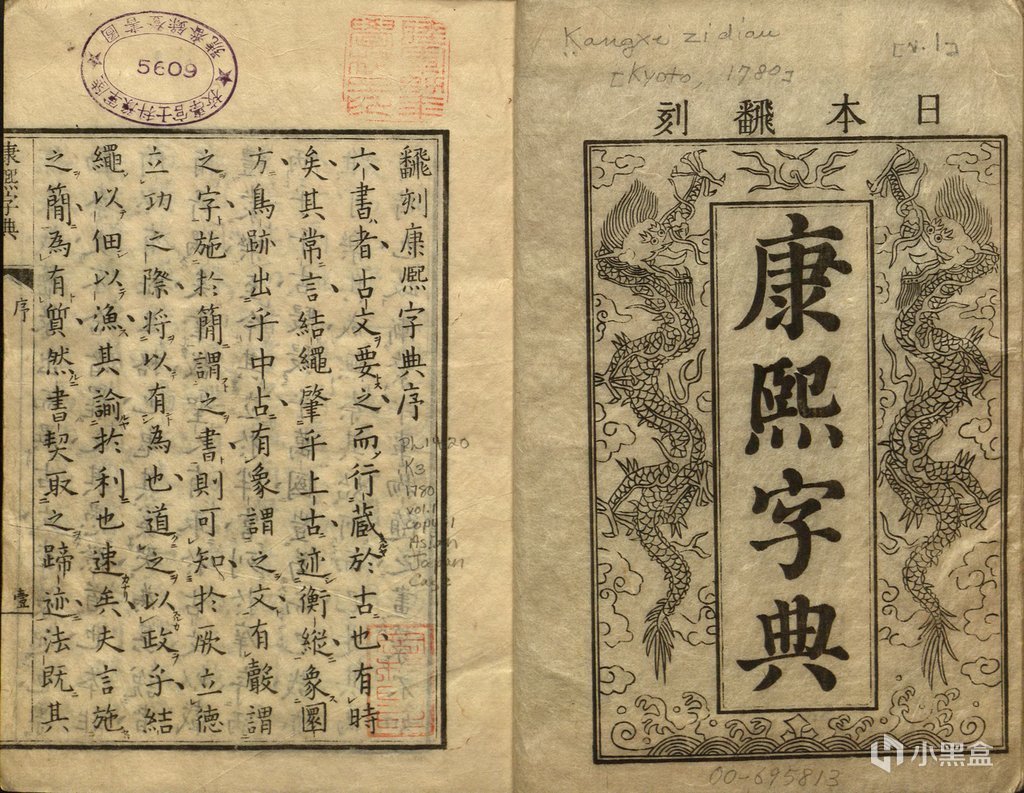 Kangxi zidian
[v.1]
[Kyoto, 1780]
日本飜刻
康熙字典
00-695813
小黑盒
5609
飜刻康熙字典序
六書者古文要之而行藏於古也有時
矣其常言結繩肇乎上古迹衡縱象圜
方鳥跡出乎中古有象謂之文有聲謂
之字施於簡謂之書則可知於厥立德
立功之際將以有為也道之以政乎結
繩以佃以漁其諭於利也速矣夫言施
之簡為有質然書契取之蹄迹法既其
康熙字典
序
壹
PL1420
K3
1780
vol.1
Copy 1
Asian
Japan
Cage